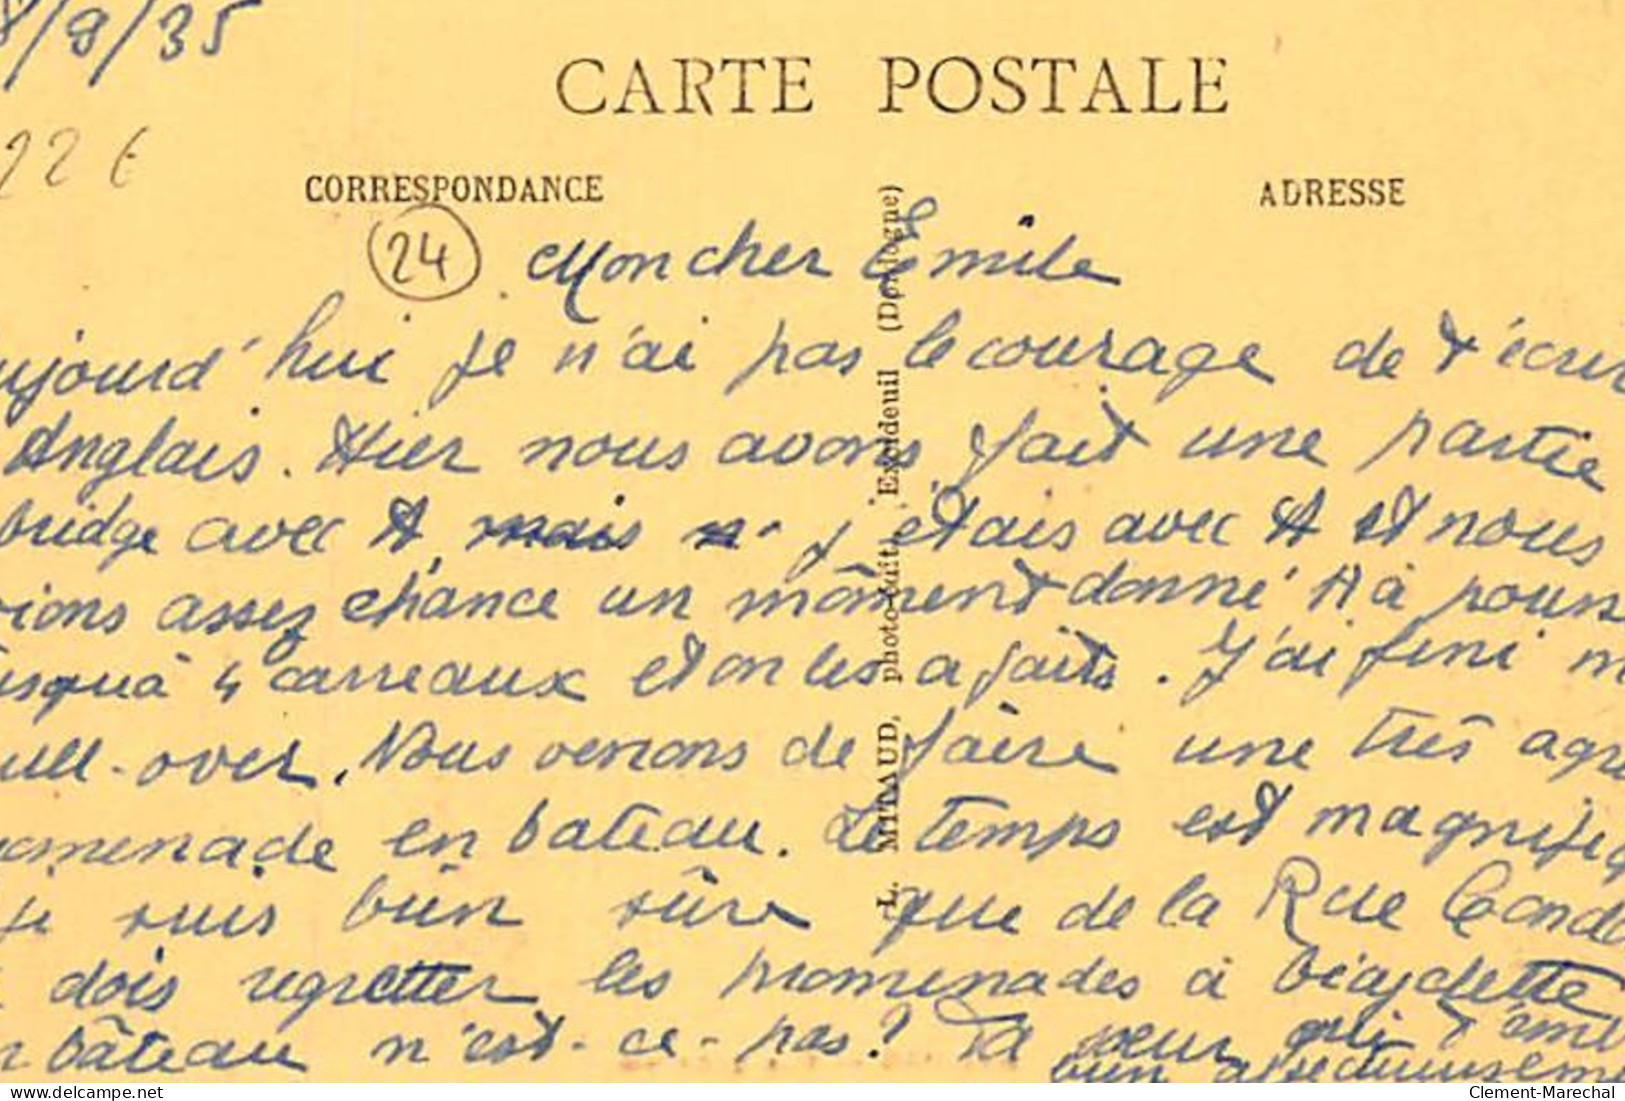 8/8/35
CARTE POSTALE
22 €
CORRESPONDANCE
ADRESSE
24
Mon cher Emile
ujourd'hui je n'ai pas le courage de t'écrir
Anglais. Hier nous avons fait une partie
bridge avec A mais n' j'étais avec A et nous
ions assez chance un môment donné A à pours
usquà 4 carreaux et on les a faits. J'ai fini m
ull-over. Nous venons de faire une très agr
omenade en bateau. Le temps est magnifiq
je suis bien sûre que de la Rue
dois regretter les promenades à bicyclette
n bâteau n'est-ce-pas? Ta soeur qui t'aime
bien affectueusemen
L. MITAUD, photo-édit., Excideuil (Dordogne)
delcampe.net
Clement-Marechal